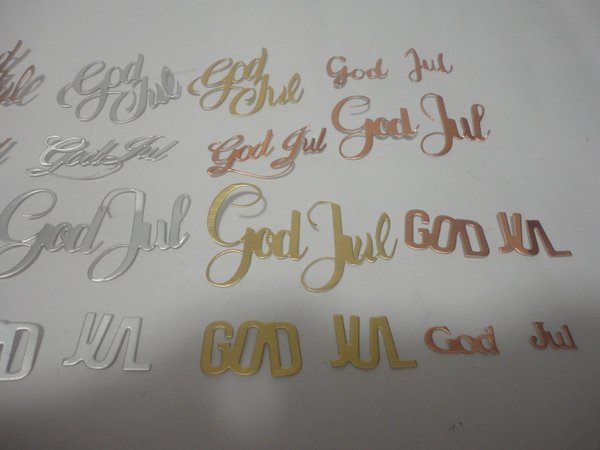 God
Jul
God
Jul
God Jul
God Jul
God Jul
God Jul
God Jul
God Jul
GOD JUL
JUL
GOD JUL
God Jul